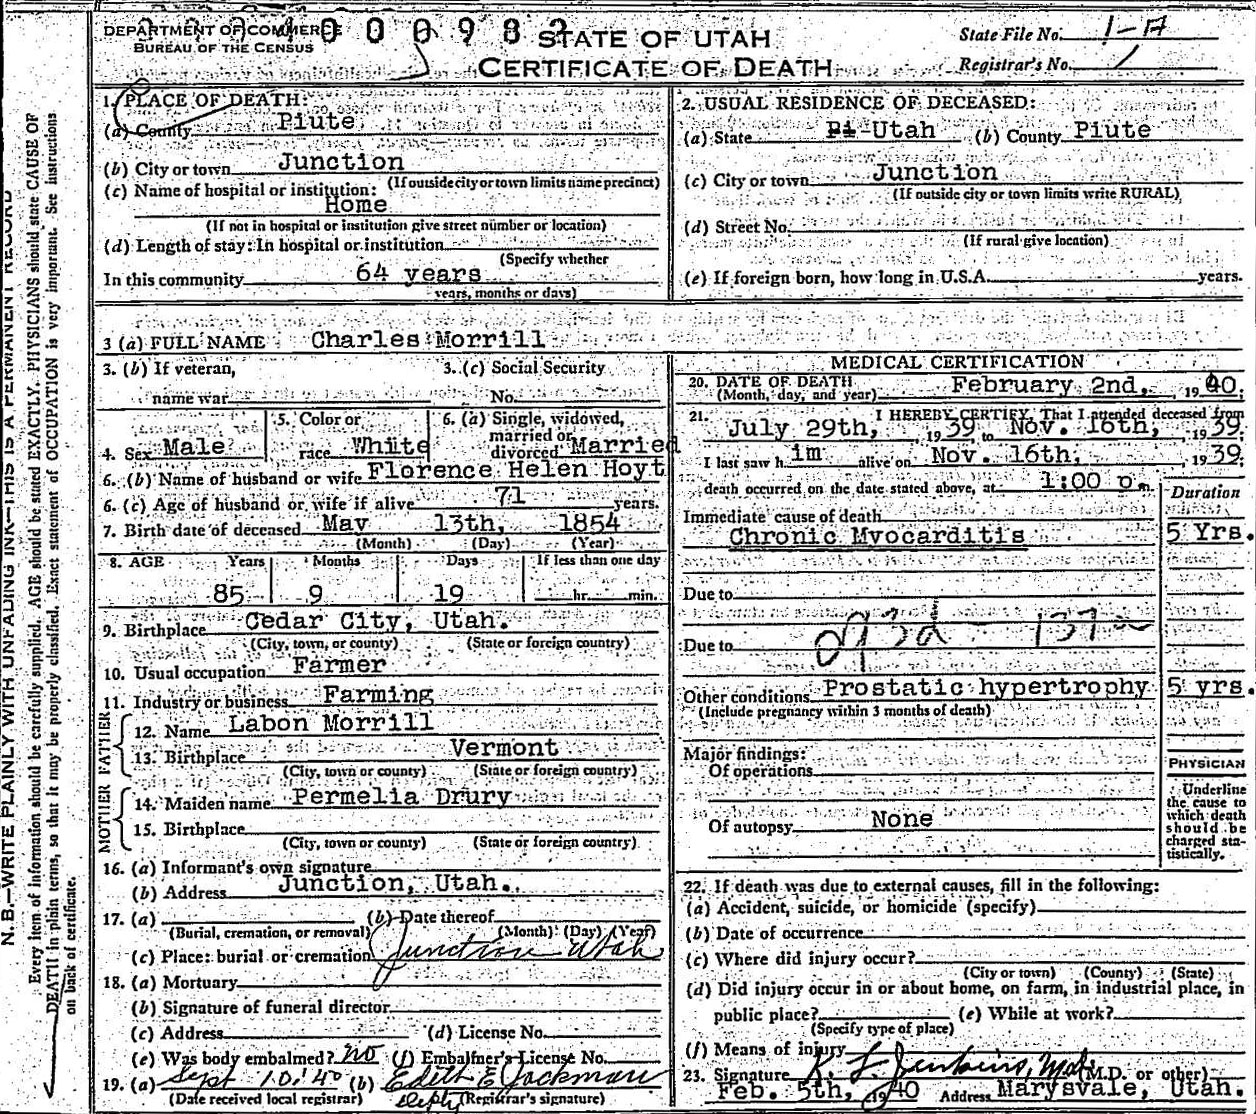 DEPARTMENT OF COMMERCE
BUREAU OF THE CENSUS
STATE OF UTAH
CERTIFICATE OF DEATH
State File No. 1-A
Registrar's No. 1
1. PLACE OF DEATH:
(a) County Piute
(b) City or town Junction
(If outside city or town limits name precinct)
(c) Name of hospital or institution:
Home
(If not in hospital or institution give street number or location)
(d) Length of stay: In hospital or institution
(Specify whether
In this community 64 years
years, months or days)
2. USUAL RESIDENCE OF DECEASED:
(a) State Pi-Utah (b) County Piute
(c) City or town Junction
(If outside city or town limits write RURAL)
(d) Street No.
(If rural give location)
(e) If foreign born, how long in U.S.A. years.
3 (a) FULL NAME Charles Morrill
3. (b) If veteran, name war
3. (c) Social Security No.
4. Sex Male
5. Color or race White
6. (a) Single, widowed, married or divorced Married
6. (b) Name of husband or wife Florence Helen Hoyt
6. (c) Age of husband or wife if alive 71 years.
7. Birth date of deceased May 13th, 1854
(Month) (Day) (Year)
8. AGE Years Months Days If less than one day
85 9 19 hr. min.
9. Birthplace Cedar City, Utah.
(City, town, or county) (State or foreign country)
10. Usual occupation Farmer
11. Industry or business Farming
FATHER
12. Name Labon Morrill
13. Birthplace Vermont
(City, town or county) (State or foreign country)
MOTHER
14. Maiden name Permelia Drury
15. Birthplace
(City, town or county) (State or foreign country)
16. (a) Informant's own signature
(b) Address Junction, Utah.
17. (a) (b) Date thereof
(Burial, cremation, or removal) (Month) (Day) (Year)
(c) Place: burial or cremation Junction Utah
18. (a) Mortuary
(b) Signature of funeral director
(c) Address (d) License No.
(e) Was body embalmed? no (f) Embalmer's License No.
19. (a) Sept 10, '40 (b) Edith E Jackman
(Date received local registrar) Depty (Registrar's signature)
MEDICAL CERTIFICATION
20. DATE OF DEATH February 2nd, 1940.
(Month, day, and year)
21. I HEREBY CERTIFY, That I attended deceased from
July 29th, 1939 to Nov. 16th, 1939.
I last saw him alive on Nov. 16th, 1939.
death occurred on the date stated above, at 1:00 m.
Duration
Immediate cause of death
Chronic Myocarditis 5 Yrs.
Due to
Due to
137
Other conditions Prostatic hypertrophy 5 yrs.
(Include pregnancy within 3 months of death)
Major findings:
Of operations
Of autopsy None
PHYSICIAN
Underline
the cause to
which death
should be
charged sta-
tistically.
22. If death was due to external causes, fill in the following:
(a) Accident, suicide, or homicide (specify)
(b) Date of occurrence
(c) Where did injury occur?
(City or town) (County) (State)
(d) Did injury occur in or about home, on farm, in industrial place, in
public place? (e) While at work?
(Specify type of place)
(f) Means of injury
23. Signature K. L. Jenkins, Md. (M.D. or other)
Feb. 5th, 1940 Address Marysvale, Utah.
N. B.—WRITE PLAINLY WITH UNFADING INK—THIS IS A PERMANENT RECORD
Every item of information should be carefully supplied. AGE should be stated EXACTLY. PHYSICIANS should state CAUSE OF
DEATH in plain terms, so that it may be properly classified. Exact statement of OCCUPATION is very important. See instructions
on back of certificate.